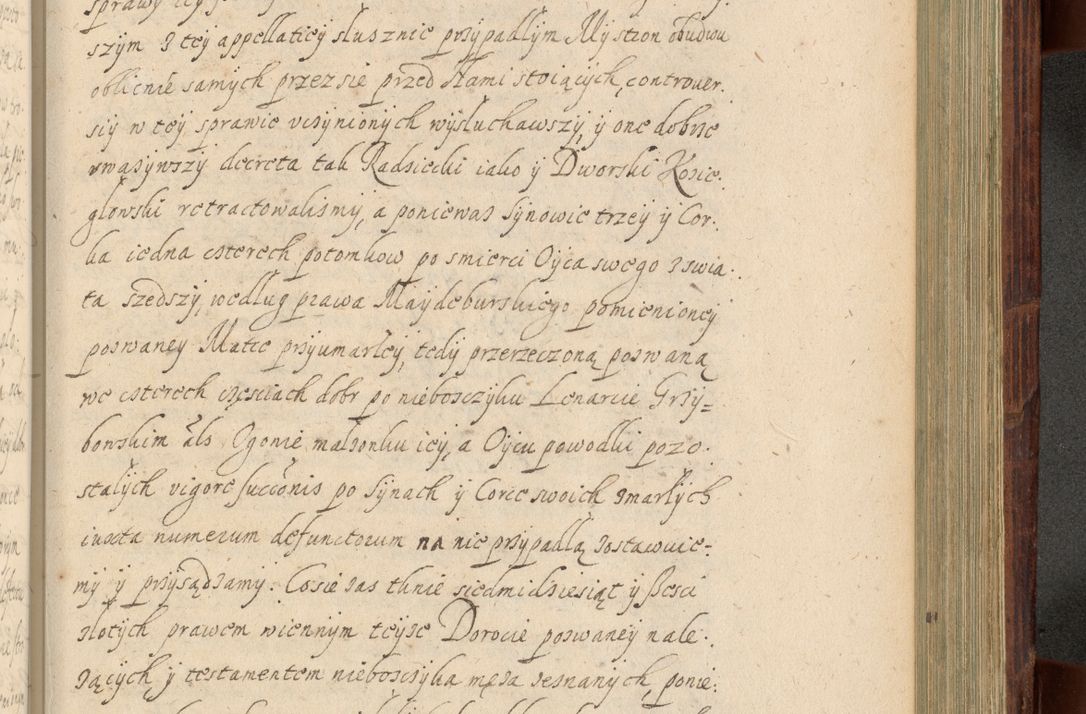 szym z tey appellatiey slusznie przypadłym My stron obudwu
oblicnie samych przez sie przed Nami stoiących, controver.
siy w tey sprawie uczynionych wysłuchawszy, y one dobrze
uwazywszy decreta tak Radziecki iako y Dworski Kozie.
głowski retractowalismy, a poniewaz Synowie trzey y Cor.
ka iedna czterech potomkow po smierci Oyca swego z swia.
ta szedszy, według prawa Maydeburskiego pomienioney
pozwaney Matce przyumarłey, tedy przerzeczoną pozwaną
we czterech częsciach dobr po nieboszczyku Lenarcie Grzy=
bowskim als Ogonie malzonku iey, a Oycu powodki pozo.
stałych vigore succōnis po Synach y Corce swoich zmarłych
iuxta numerum defunctorum na nie przypadłą zostawuie=
my y przysądzamy. Co sie zas tknie siedmidziesiąt y szesci
złotych prawem wiennym teyze Dorocie pozwaney nale.
zących, y testamentem nieboszczyka męza zeznanych, ponie: